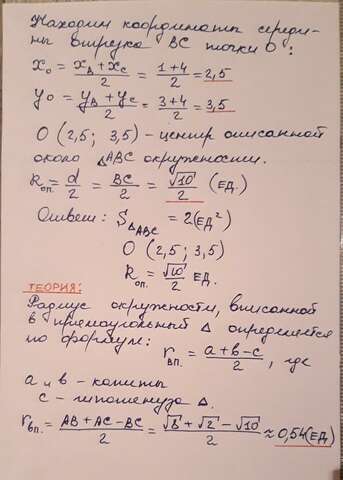 Находим координаты середи-
ны отрезка BC точки O:
x₀ = (x_B + x_C)/2 = (1+4)/2 = 2,5
y₀ = (y_B + y_C)/2 = (3+4)/2 = 3,5
O (2,5; 3,5) - центр описанной
около △ABC окружности.
R_оп. = d/2 = BC/2 = √10/2 (ед.)
Ответ: S_△ABC = 2(ед²)
O (2,5; 3,5)
R_оп. = √10/2 ед.
ТЕОРИЯ:
Радиус окружности, вписанной
в прямоугольный △ определяется
по формуле:
r_вп. = (a+b-c)/2, где
a и b - катеты
c - гипотенуза △.
r_вп. = (AB + AC - BC)/2 = (√8 + √2 - √10)/2 ≈ 0,54(ед)